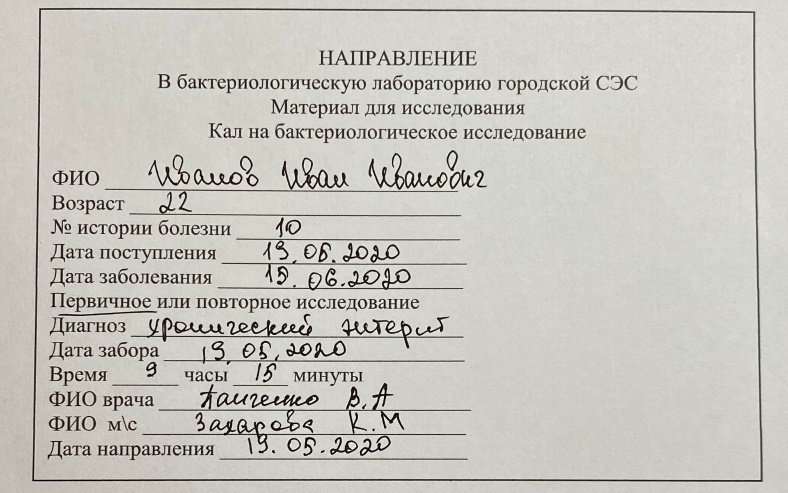 НАПРАВЛЕНИЕ
В бактериологическую лабораторию городской СЭС
Материал для исследования
Кал на бактериологическое исследование
ФИО Иванов Иван Иванович
Возраст 22
№ истории болезни 10
Дата поступления 19.05.2020
Дата заболевания 15.06.2020
Первичное или повторное исследование
Диагноз хронический энтерит
Дата забора 19.05.2020
Время 9 часы 15 минуты
ФИО врача Панченко В.А
ФИО м\с Захарова К.М
Дата направления 19.05.2020